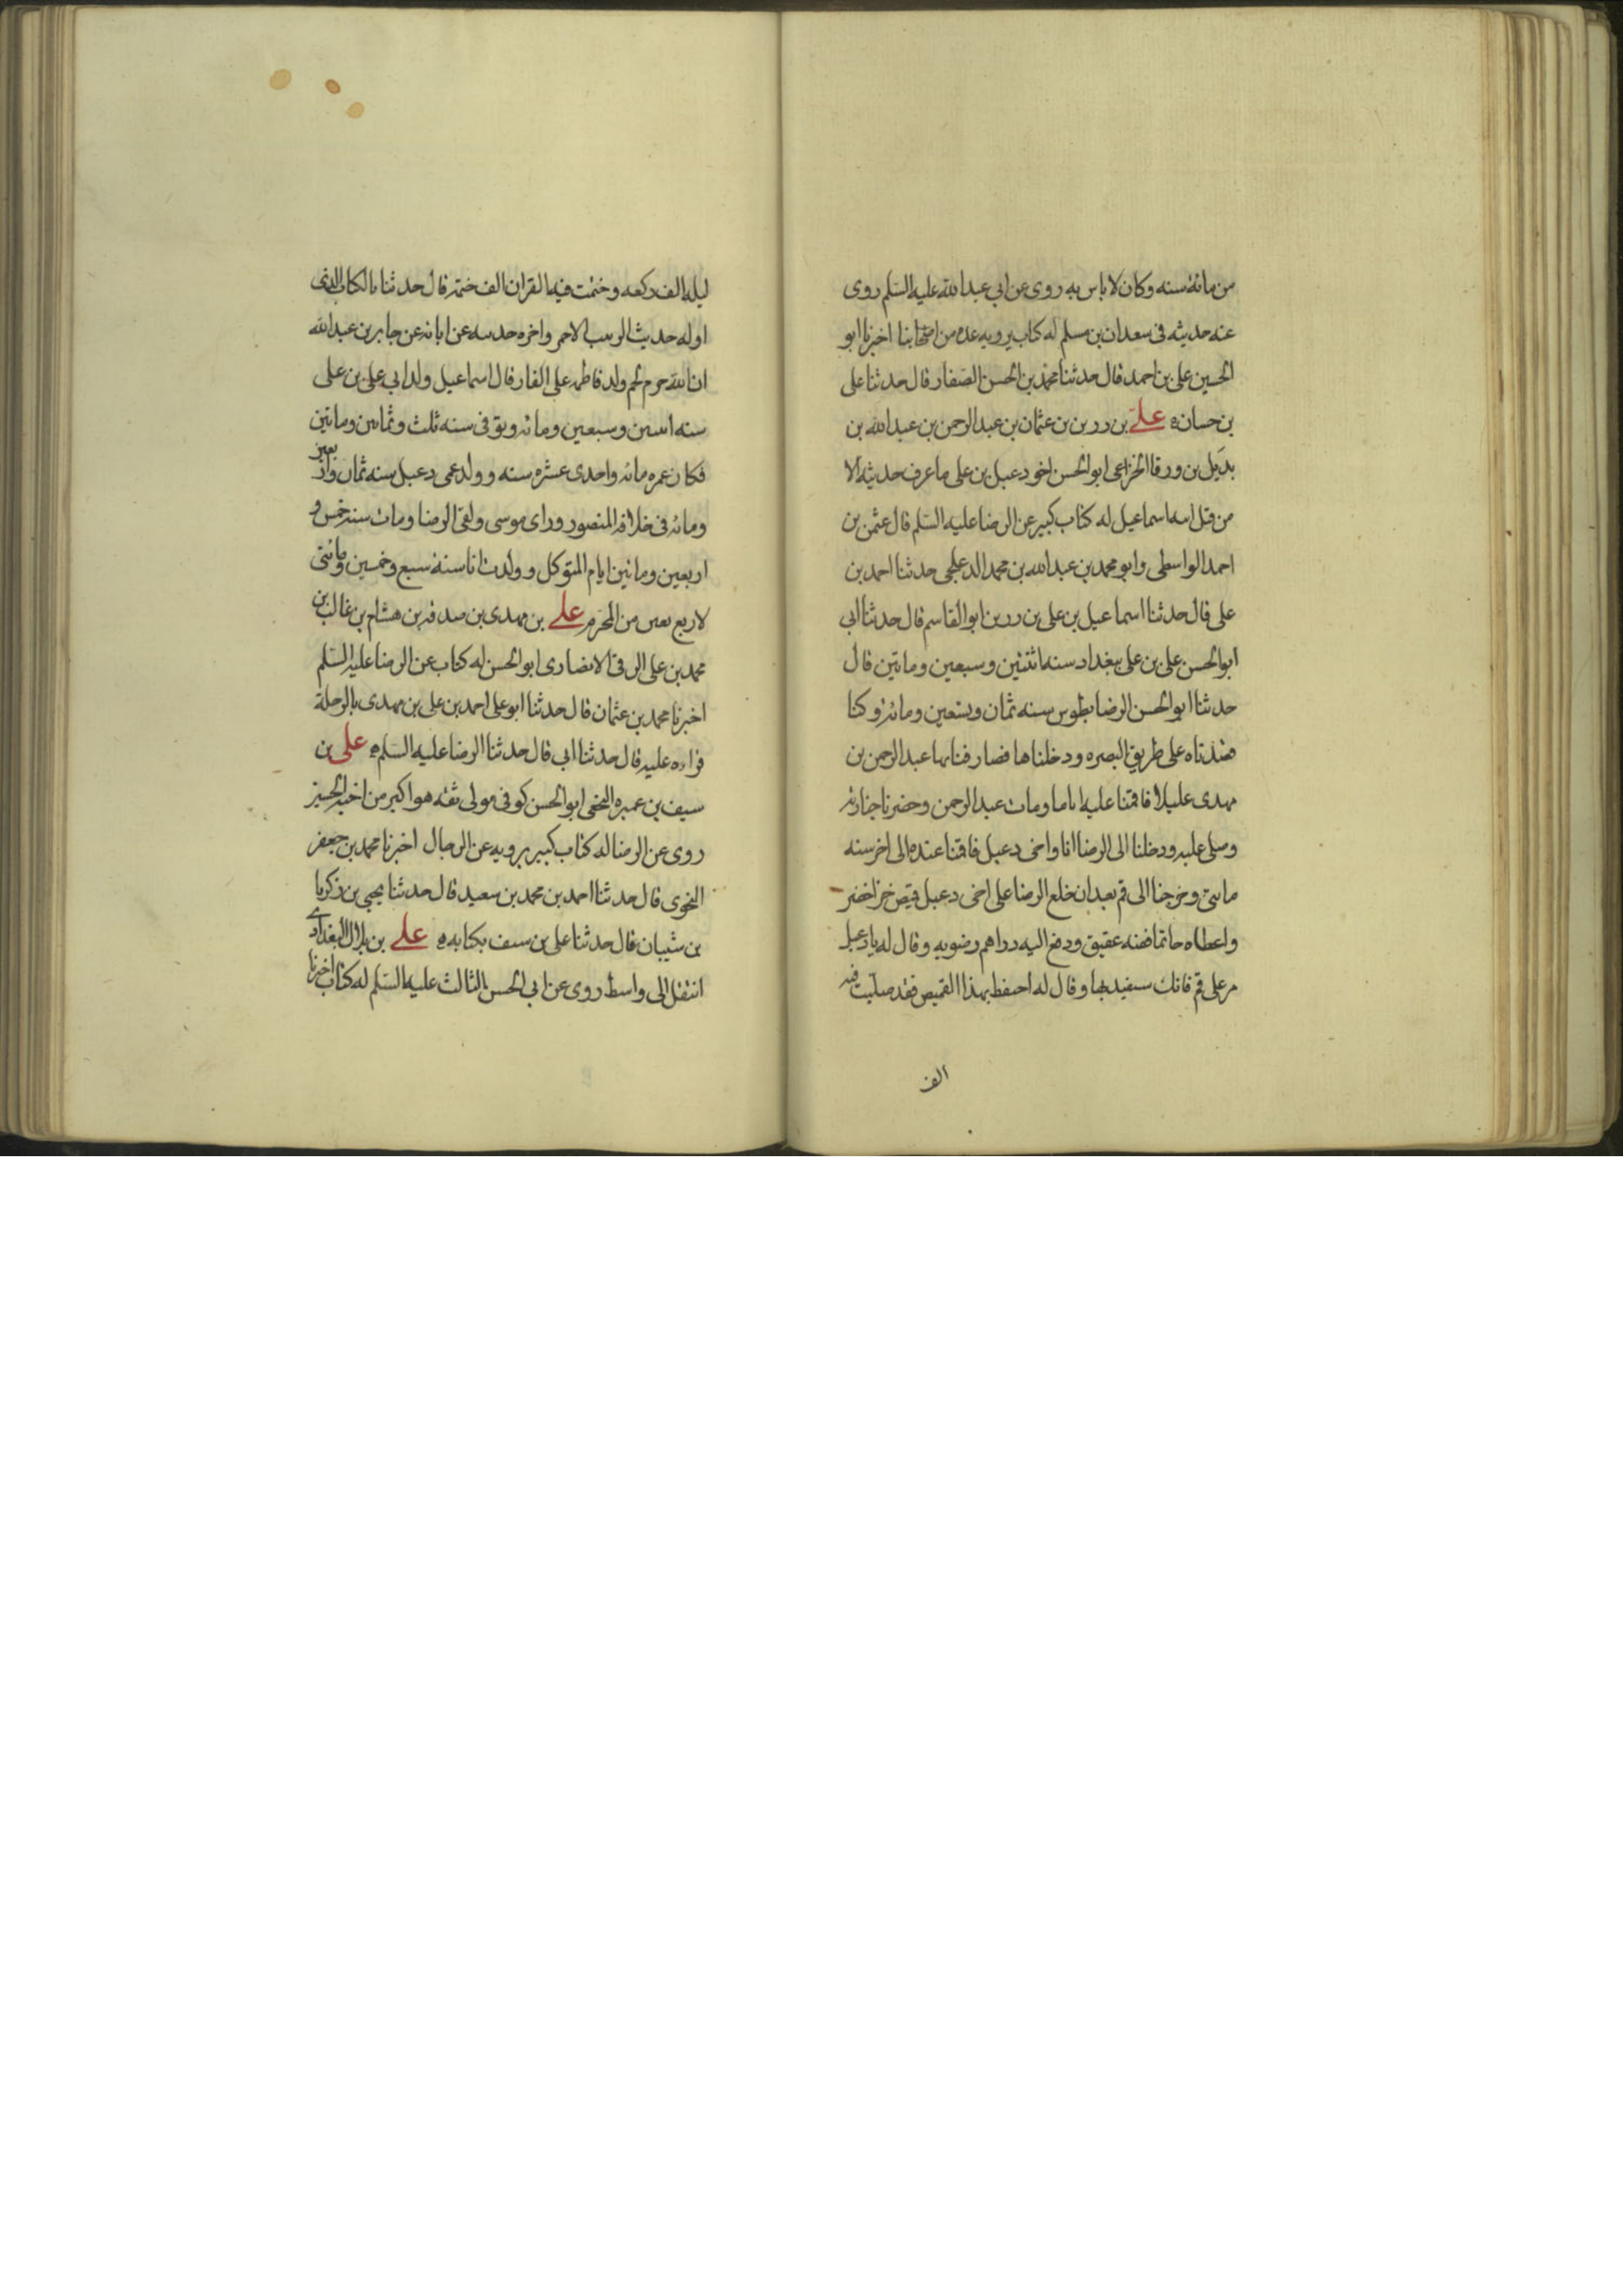 من مائة سنه وكان لا باس به روى عن ابي عبد الله عليه السلم روى
عنه حديثه فى سعدان بن مسلم له كتاب يرويه عده من اصحابنا اخبرنا ابو
الحسين على بن احمد قال حدثنا محمد بن الحسن الصفار قال حدثنا على
بن حسان ه على بن رزين بن عثمان بن عبد الرحمن بن عبد الله بن
بديل بن ورقا الخزاعى ابو الحسن اخو دعبل بن على ما عرف حديثه الا
من قبل ابنه اسماعيل له كتاب كبير عن الرضا عليه السلم قال عثمن بن
احمد الواسطى وابو محمد بن عبد الله بن محمد الدعلجى حدثنا احمد بن
على قال حدثنا اسماعيل بن على بن رزين ابو القاسم قال حدثنا ابى
ابو الحسن على بن على ببغداد سنه اثنتين وسبعين وماتين قال
حدثنا ابو الحسن الرضا بطوس سنه ثمان وتسعين ومائه وكنا
قصدناه على طريق البصره ودخلناها فصادفنا بها عبد الرحمن بن
مهدى عليلا فاقمنا عليه اياما ومات عبد الرحمن وحضرنا جنازته
وصلى عليه ودخلنا الى الرضا انا واخى دعبل فاقمنا عنده الى اخر سنه
ماتين وخرجنا الى قم بعد ان خلع الرضا على اخى دعبل قميص خز اخضر
واعطاه خاتما فضه عقيق ودفع اليه دراهم رضويه وقال له يا دعبل
مر على قم فانك ستفيد بها وقال له احتفظ بهذا القميص فقد صليت فيه
الف
ليله الف ركعه وختمت فيه القران الف ختمه قال حدثنا بالكتاب الذى
اوله حديث الزبيب الاحمر واخره حديثه عن ابائه عن جابر بن عبد الله
ان الله حرم لحم ولد فاطمه على النار قال اسماعيل ولد ابي على بن على
سنه اثنين وسبعين ومائه وتوفى سنه ثلث وثمانين وماتين
فكان عمره مائه واحدى عشره سنه وولد عمى دعبل سنه ثمان واربعين
ومائه فى خلافه المنصور وراى موسى ولقى الرضا ومات سنه خمس و
اربعين وماتين ايام المتوكل وولدت انا سنة سبع وخمسين ومائتى
لاربع بقين من المحرم على بن مهدى بن صدقه بن هشام بن غالب بن
محمد بن على الرقى الانصارى ابو الحسن له كتاب عن الرضا عليه السلم
اخبرنا محمد بن عثمان قال حدثنا ابو على احمد بن على بن مهدى بالرحلة
قراءه عليه قال حدثنا ابى قال حدثنا الرضا عليه السلم ه على بن
سيف بن عميره النخعى ابو الحسن كوفى مولى ثقه هو اكبر من اخيه الحسين
روى عن الرضا له كتاب كبير يرويه عن الرجال اخبرنا محمد بن جعفر
النحوى قال حدثنا احمد بن محمد بن سعيد قال حدثنا يحيى بن زكريا
بن شيبان قال حدثنا على بن سيف بكتابه ه على بن بلال البغدادى
انتقل الى واسط روى عن ابي الحسن الثالث عليه السلم له كتاب اخبرنا